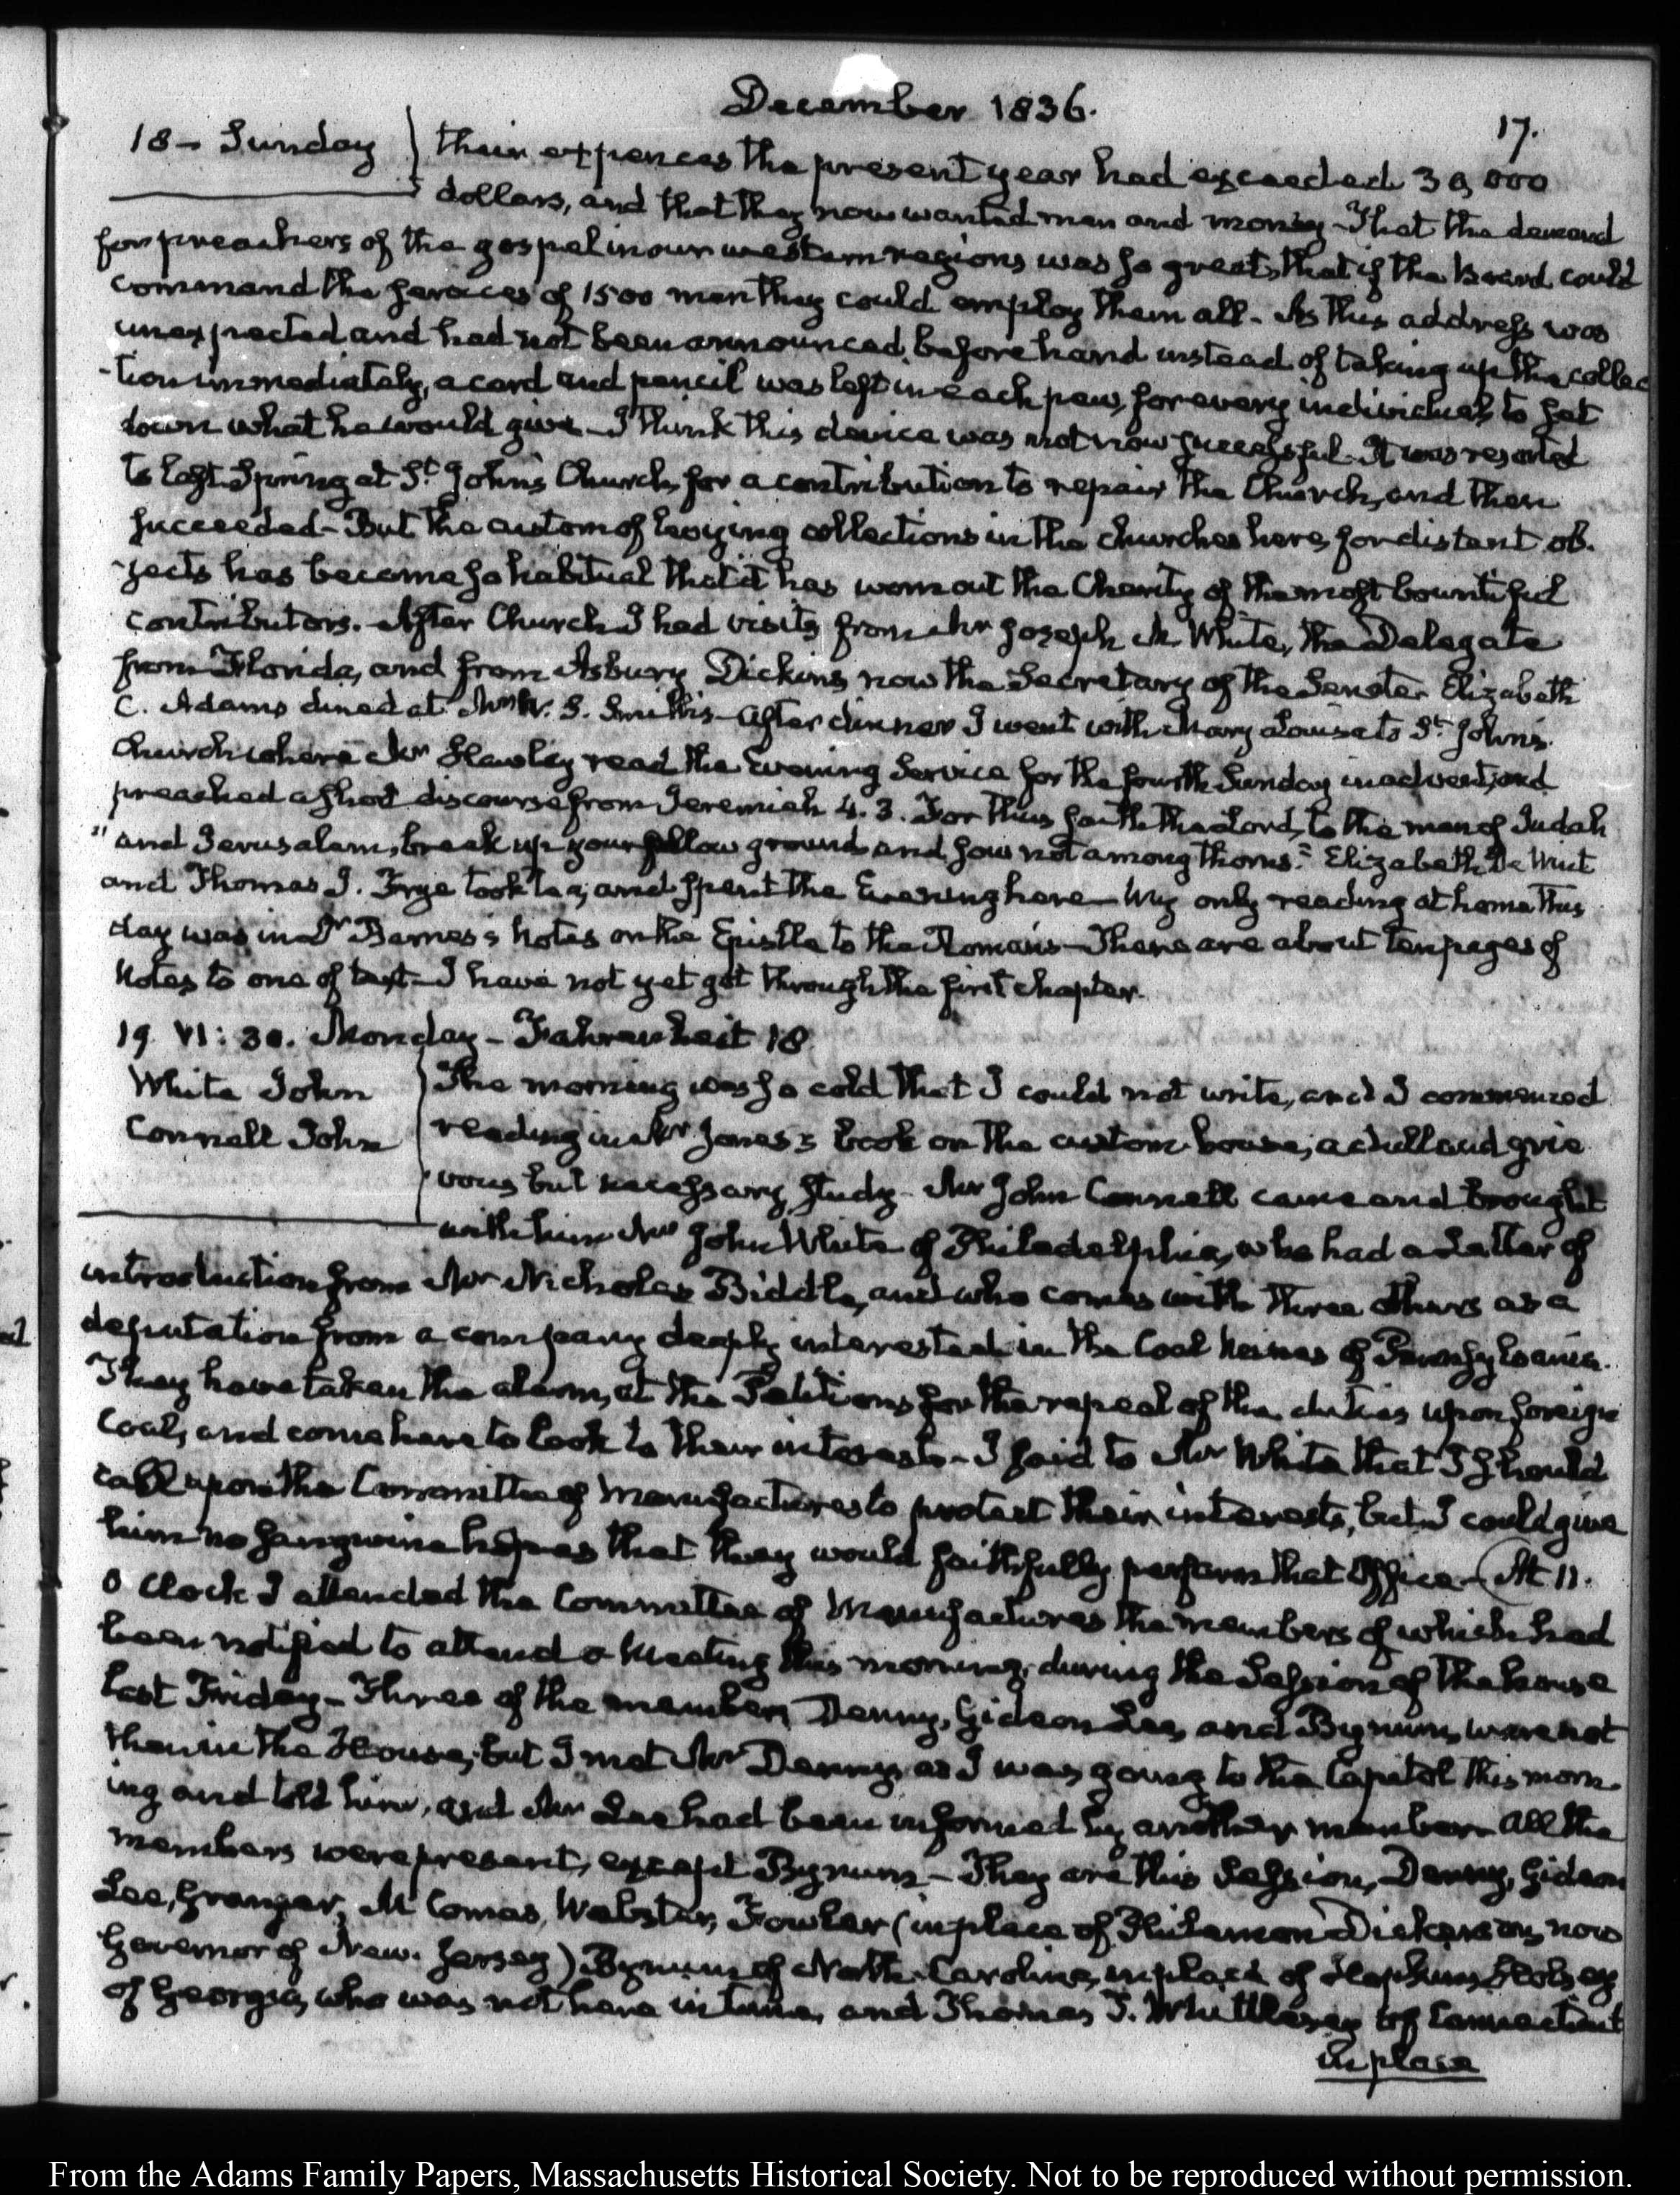 December 1836.
17.
18 - Sunday
their expences the present year had exceeded 30,000
dollars, and that they now wanted men and money - That the demand
for preachers of the gospel in our western regions was so great, that if the Board could
command the services of 1500 men they could employ them all - As this address was
unexpected and had not been announced before hand instead of taking up the collec
-tion immediately, a card and pencil was left in each pew, for every individual, to set
down what he would give - I think this device was not now successful - It was resorted
to last Spring at St. John's Church, for a contribution to repair the Church, and then
succeeded - But the custom of levying collections in the churches here, for distant ob.
-jects has become so habitual that it has worn out the Charity of the most bountiful
contributors. After Church I had visits from Mr Joseph M. White, the Delegate
from Florida, and from Asbury Dickins now the Secretary of the Senate. Elizabeth
C. Adams dined at Mr W. S. Smith's - After dinner I went with Mary Louisa to St. John's
Church where Mr Hawley read the Evening Service for the fourth Sunday in advent, and
preached a short discourse from Jeremiah 4. 3. For thus saith the Lord, to the men of Judah
"and Jerusalem, break up your fallow ground and sow not among thorns." Elizabeth De Wint
and Thomas J. Frye took tea, and spent the Evening here - My only reading at home this
day was in Dr Barnes's Notes on the Epistle to the Romans - There are about ten pages of
Notes to one of text - I have not yet got through the first chapter.
19. VI: 30. Monday - Fahrenheit 18
White John
Connell John
The morning was so cold that I could not write, and I commenced
reading in Mr Jones's book on the custom house, a dull and grie
vous but necessary study - Mr John Connell came and brought
with him Mr John White of Philadelphia, who had a Letter of
introduction from Mr Nicholas Biddle, and who comes with three others as a
deputation from a company deeply interested in the Coal Mines of Pennsylvania.
They have taken the alarm, at the Petitions for the repeal of the duties upon foreign
Coal, and come here to look to their interests - I said to Mr White that I should
call upon the Committee of Manufactures to protect their interests, but I could give
him no sanguine hopes that they would faithfully perform that Office - At 11.
O Clock I attended the Committee of Manufactures the members of which had
been notified to attend a Meeting this morning, during the Session of the house
last Friday - Three of the members, Denny, Gideon Lee, and Bynum, were not
then in the House, but I met Mr Denny as I was going to the Capitol this morn
ing and told him, and Mr Lee had been informed by another member - All the
members were present, except Bynum - They are this Session, Denny, Gideon
Lee, Granger, McComas, Webster, Fowler (in place of Philemon Dickerson, now
Governor of New. Jersey) Bynum of North. Carolina, in place of Hopkins Holsey
of Georgia, who was not here in time, and Thomas T. Whittlesey of Connecticut
in place
From the Adams Family Papers, Massachusetts Historical Society. Not to be reproduced without permission.